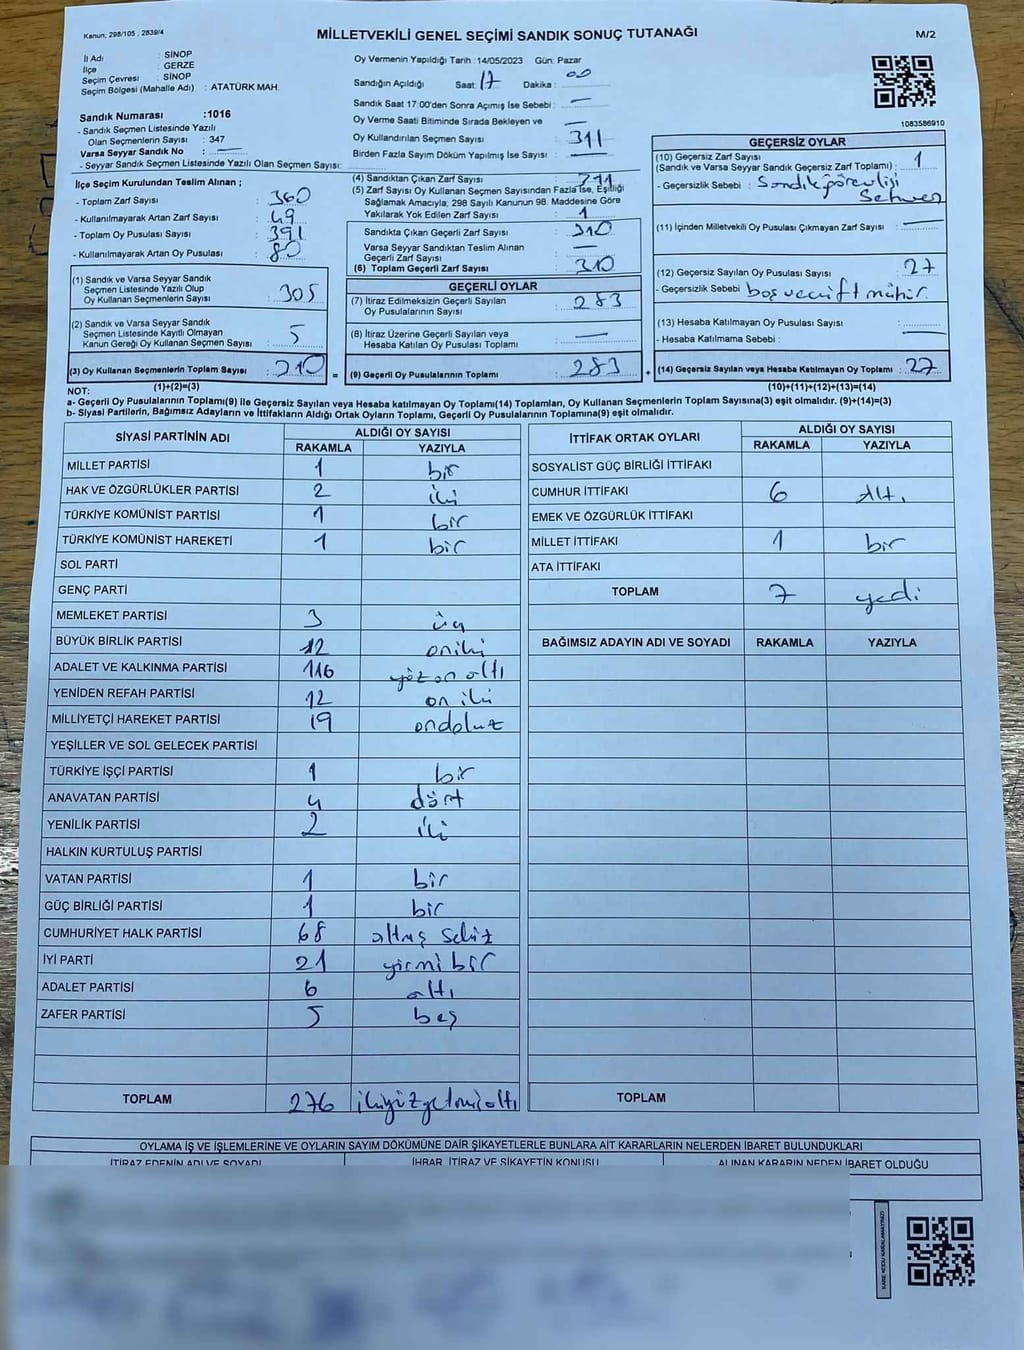 Kanun; 298/105 , 2839/4
MİLLETVEKİLİ GENEL SEÇİMİ SANDIK SONUÇ TUTANAĞI
M/2
İl Adı : SİNOP
İlçe : GERZE
Seçim Çevresi : SİNOP
Seçim Bölgesi (Mahalle Adı) : ATATÜRK MAH.
Sandık Numarası :1016
- Sandık Seçmen Listesinde Yazılı
Olan Seçmenlerin Sayısı : 347
Varsa Seyyar Sandık No : —
- Seyyar Sandık Seçmen Listesinde Yazılı Olan Seçmen Sayısı:
Oy Vermenin Yapıldığı Tarih :14/05/2023 Gün: Pazar
Sandığın Açıldığı Saat: 17 Dakika : 00
Sandık Saat 17:00'den Sonra Açımış İse Sebebi : —
Oy Verme Saati Bitiminde Sırada Bekleyen ve —
Oy Kullandırılan Seçmen Sayısı : 311
Birden Fazla Sayım Döküm Yapılmış İse Sayısı : —
1083586910
İlçe Seçim Kurulundan Teslim Alınan ;
- Toplam Zarf Sayısı : 360
- Kullanılmayarak Artan Zarf Sayısı : 49
- Toplam Oy Pusulası Sayısı : 391
- Kullanılmayarak Artan Oy Pusulası : 80
(1) Sandık ve Varsa Seyyar Sandık
Seçmen Listesinde Yazılı Olup
Oy Kullanan Seçmenlerin Sayısı : 305
(2) Sandık ve Varsa Seyyar Sandık
Seçmen Listesinde Kayıtlı Olmayan
Kanun Gereği Oy Kullanan Seçmen Sayısı : 5
(3) Oy Kullanan Seçmenlerin Toplam Sayısı : 310 =
(4) Sandıktan Çıkan Zarf Sayısı : 311
(5) Zarf Sayısı Oy Kullanan Seçmen Sayısından Fazla İse, Eşitliği
Sağlamak Amacıyla; 298 Sayılı Kanunun 98. Maddesine Göre
Yakılarak Yok Edilen Zarf Sayısı : 1
Sandıkta Çıkan Geçerli Zarf Sayısı : 310
Varsa Seyyar Sandıktan Teslim Alınan
Geçerli Zarf Sayısı : —
(6) Toplam Geçerli Zarf Sayısı : 310
GEÇERLİ OYLAR
(7) İtiraz Edilmeksizin Geçerli Sayılan
Oy Pusulalarının Sayısı : 283
(8) İtiraz Üzerine Geçerli Sayılan veya
Hesaba Katılan Oy Pusulası Toplamı : —
(9) Geçerli Oy Pusulalarının Toplamı : 283 +
GEÇERSİZ OYLAR
(10) Geçersiz Zarf Sayısı
(Sandık ve Varsa Seyyar Sandık Geçersiz Zarf Toplamı) : 1
- Geçersizlik Sebebi : Sandık görevlisi
Sehven
(11) İçinden Milletvekili Oy Pusulası Çıkmayan Zarf Sayısı : —
(12) Geçersiz Sayılan Oy Pusulası Sayısı : 27
- Geçersizlik Sebebi : boş ve çift mühür.
(13) Hesaba Katılmayan Oy Pusulası Sayısı : —
- Hesaba Katılmama Sebebi : —
(14) Geçersiz Sayılan veya Hesaba Katılmayan Oy Toplamı : 27
NOT: (1)+(2)=(3) (10)+(11)+(12)+(13)=(14)
a- Geçerli Oy Pusulalarının Toplamı(9) ile Geçersiz Sayılan veya Hesaba katılmayan Oy Toplamı(14) Toplamları, Oy Kullanan Seçmenlerin Toplam Sayısına(3) eşit olmalıdır. (9)+(14)=(3)
b- Siyasi Partilerin, Bağımsız Adayların ve İttifakların Aldığı Ortak Oyların Toplamı, Geçerli Oy Pusulalarının Toplamına(9) eşit olmalıdır.
SİYASİ PARTİNİN ADI ALDIĞI OY SAYISI
RAKAMLA YAZIYLA
MİLLET PARTİSİ 1 bir
HAK VE ÖZGÜRLÜKLER PARTİSİ 2 iki
TÜRKİYE KOMÜNİST PARTİSİ 1 bir
TÜRKİYE KOMÜNİST HAREKETİ 1 bir
SOL PARTİ
GENÇ PARTİ
MEMLEKET PARTİSİ 3 üç
BÜYÜK BİRLİK PARTİSİ 12 oniki
ADALET VE KALKINMA PARTİSİ 116 yüz on altı
YENİDEN REFAH PARTİSİ 12 on iki
MİLLİYETÇİ HAREKET PARTİSİ 19 ondokuz
YEŞİLLER VE SOL GELECEK PARTİSİ
TÜRKİYE İŞÇİ PARTİSİ 1 bir
ANAVATAN PARTİSİ 4 dört
YENİLİK PARTİSİ 2 iki
HALKIN KURTULUŞ PARTİSİ
VATAN PARTİSİ 1 bir
GÜÇ BİRLİĞİ PARTİSİ 1 bir
CUMHURİYET HALK PARTİSİ 68 altmış sekiz
İYİ PARTİ 21 yirmi bir
ADALET PARTİSİ 6 altı
ZAFER PARTİSİ 5 beş
TOPLAM 276 ikiyüzyetmişaltı
İTTİFAK ORTAK OYLARI ALDIĞI OY SAYISI
RAKAMLA YAZIYLA
SOSYALİST GÜÇ BİRLİĞİ İTTİFAKI
CUMHUR İTTİFAKI 6 Altı
EMEK VE ÖZGÜRLÜK İTTİFAKI
MİLLET İTTİFAKI 1 bir
ATA İTTİFAKI
TOPLAM 7 yedi
BAĞIMSIZ ADAYIN ADI VE SOYADI RAKAMLA YAZIYLA
TOPLAM
OYLAMA İŞ VE İŞLEMLERİNE VE OYLARIN SAYIM DÖKÜMÜNE DAİR ŞİKAYETLERLE BUNLARA AİT KARARLARIN NELERDEN İBARET BULUNDUKLARI
İTİRAZ EDENİN ADI VE SOYADI İHBAR, İTİRAZ VE ŞİKAYETİN KONUSU ALINAN KARARIN NEDEN İBARET OLDUĞU